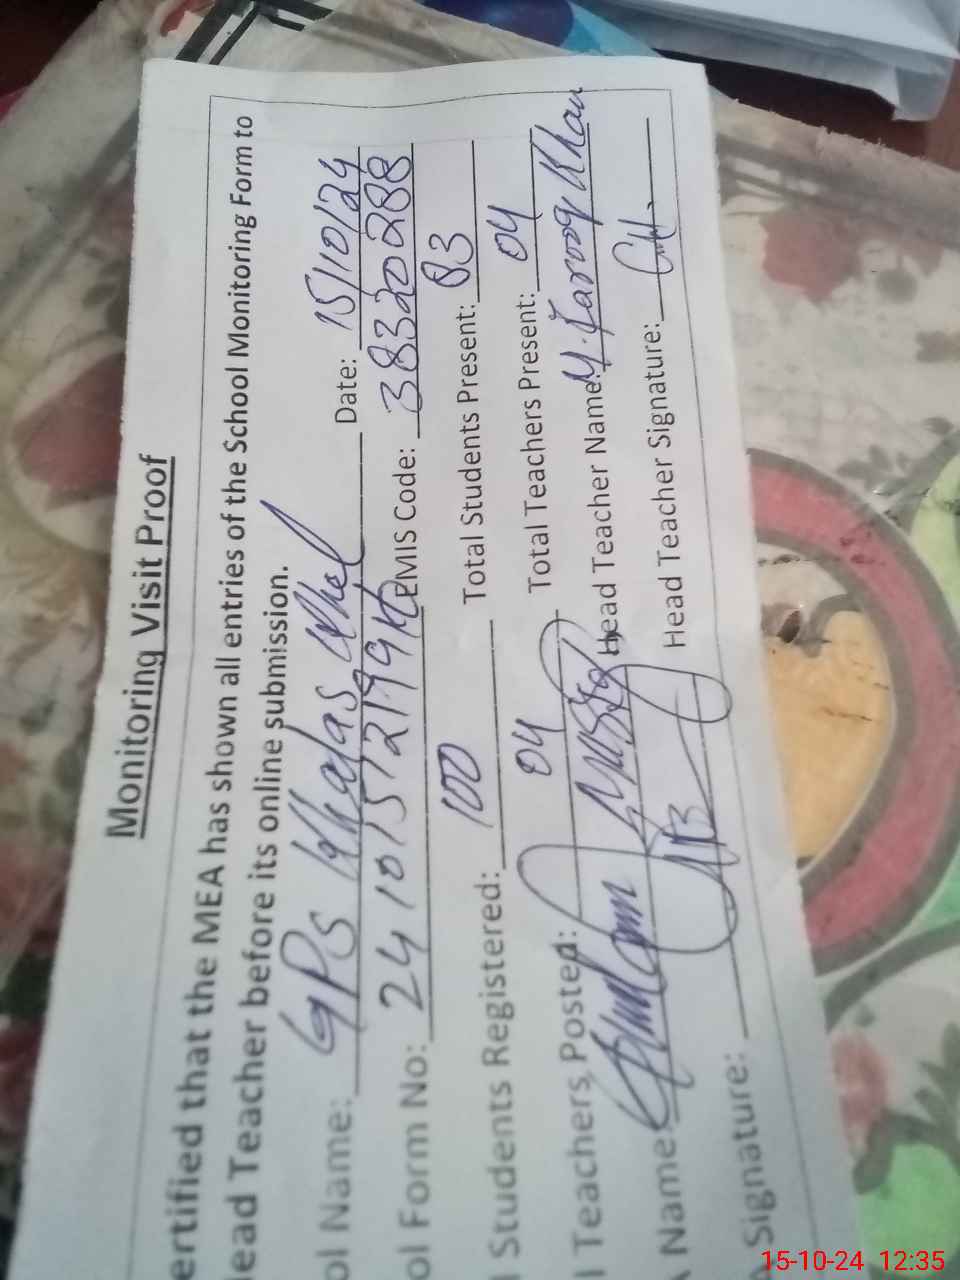 Monitoring Visit Proof
ertified that the MEA has shown all entries of the School Monitoring Form to
ead Teacher before its online submission.
ol Name: GPS Khel Date: 15/10/24
ol Form No: EMIS Code: 38320288
Students Registered: 100 Total Students Present: 83
l Teachers Posted: 04 Total Teachers Present: 04
Name: Head Teacher Name: M. Farooq Khan
Signature: Head Teacher Signature:
15-10-24 12:35